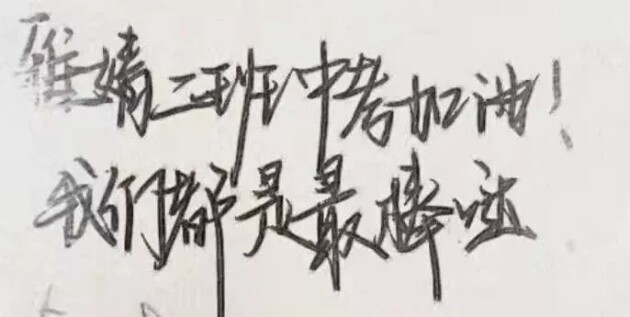 雅婧二班中考加油！
我们都是最棒哒